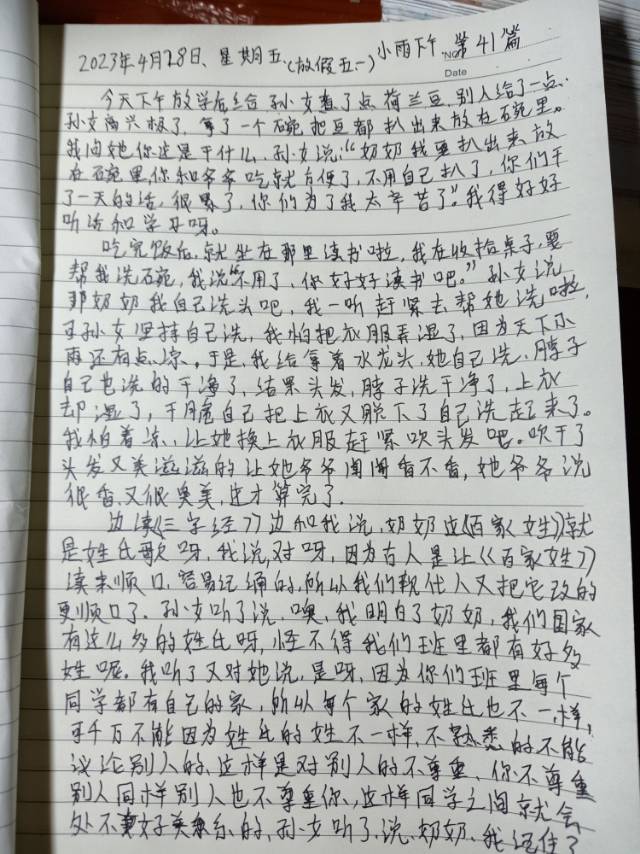 2023年4月28日、星期五、(放假五一)小雨下午 第41篇
No
Date
今天下午放学后给孙女煮了点荷兰豆,别人给了一点.
孙女高兴极了,拿了一个碗把豆都扒出来放在碗里。
我问她你这是干什么,孙女说:“奶奶我要扒出来放
在碗里,你和爷爷吃就方便了,不用自己扒了,你们干
了一天的活,很累了,你们为了我太辛苦了”我得好好
听话和学习呀。
吃完饭后,就坐在那里读书啦,我在收拾桌子,要
帮我洗碗,我说“不用了,你好好读书吧。”孙女说
那奶奶我自己洗头吧,我一听赶紧去帮她洗啦,
可孙女坚持自己洗,我怕把衣服弄湿了,因为天下小
雨还有点凉,于是,我给拿着水龙头,她自己洗,脖子
自己也洗的干净了,结果头发,脖子洗干净了,上衣
却湿了,干脆自己把上衣又脱下了自己洗起来了。
我怕着凉,让她换上衣服赶紧吹头发吧。吹干了
头发又美滋滋的让她爷爷闻闻香不香,她爷爷说
很香又很臭美,这才算完了.
边读《三字经》边和我说,奶奶这《百家姓》就
是姓氏歌呀,我说,对呀,因为古人是让《百家姓》
读来顺口,容易记诵的,所以我们现代人又把它改的
更顺口了.孙女听了说,噢,我明白了奶奶,我们国家
有这么多的姓氏呀,怪不得我们班里都有好多
姓呢。我听了又对她说,是呀,因为你们班里每个
同学都有自己的家,所以每个家的姓氏也不一样,
可千万不能因为姓氏的姓不一样,不熟悉的不能
议论别人的,这样是对别人的不尊重、你不尊重
别人同样别人也不尊重你,这样同学之间就会
处不好关系的,孙女听了,说,奶奶,我记住了